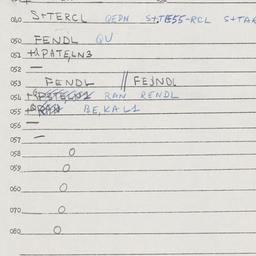 040 S+TERCL QEDN S+TESS-RCL S+TAK
050 FENDL QU
051 +1PATE,LN3
052 —
053 FENDL // FEJNDL
054 RAN RENDL
055 BE,KAL1
056 —
057 —
058 O
059 O
060 O
070 O
080 O